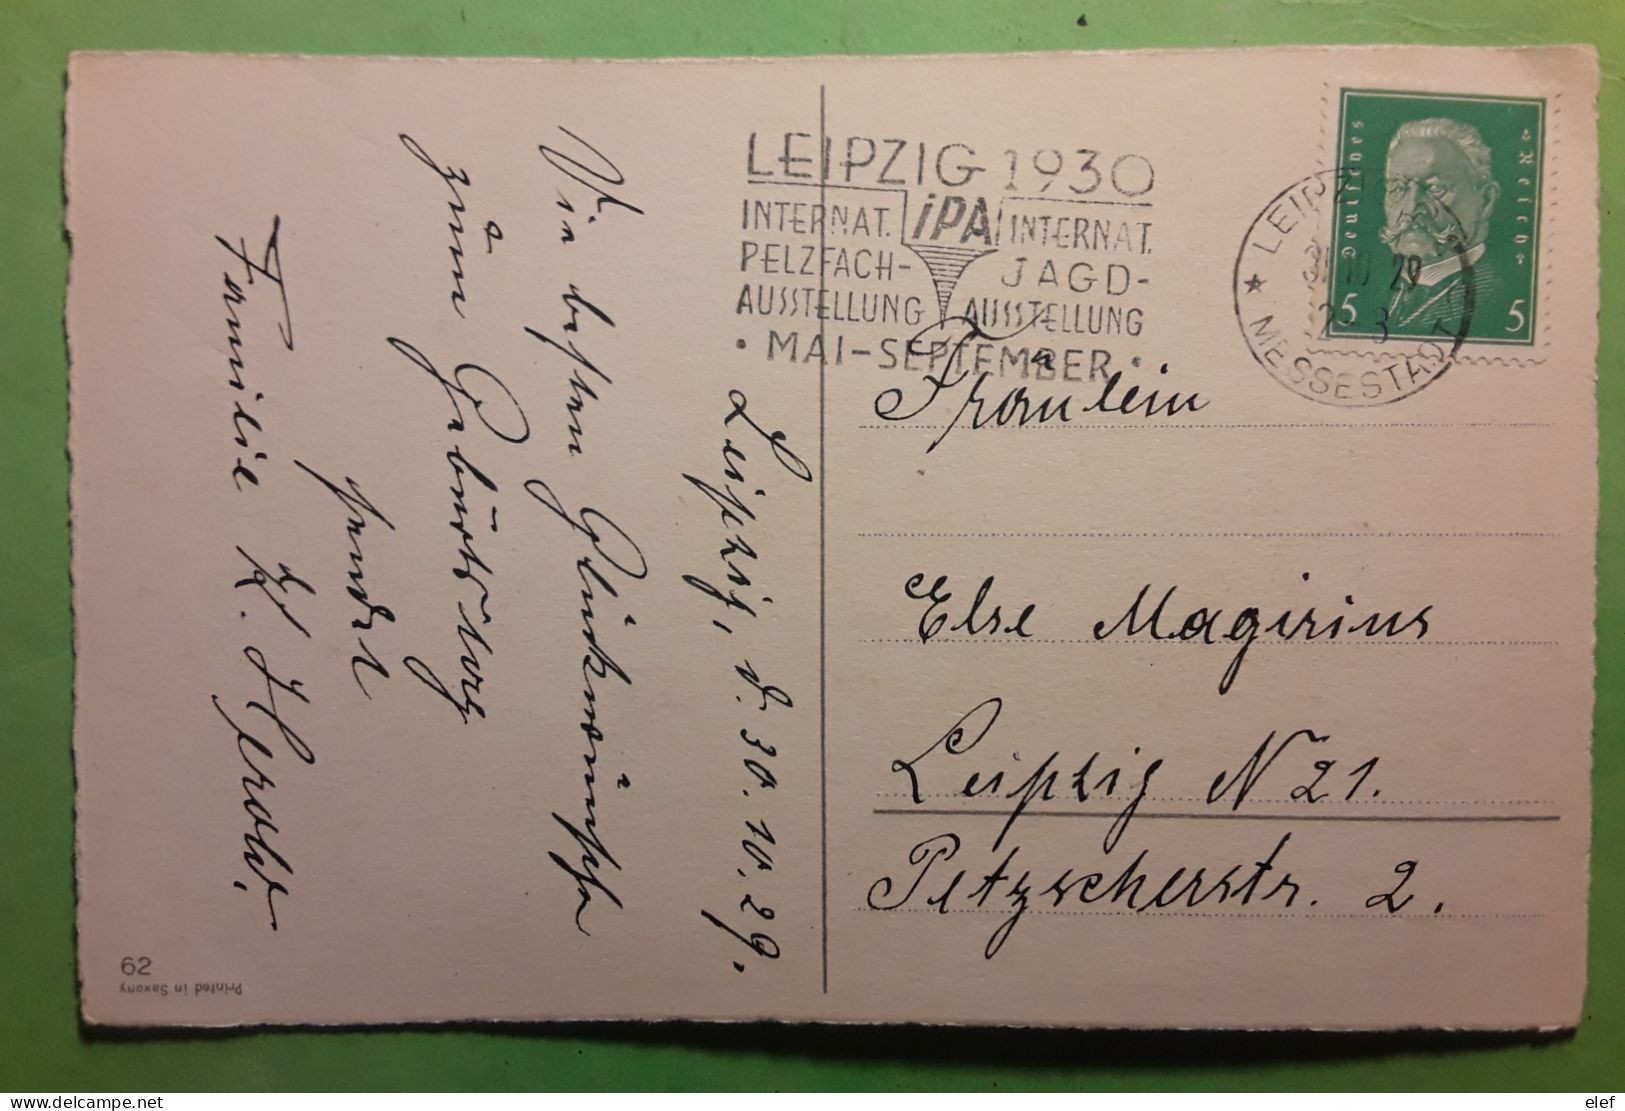 LEIPZIG 1930
INTERNAT. iPA INTERNAT.
PELZFACH- JAGD-
AUSSTELLUNG AUSSTELLUNG
• MAI-SEPTEMBER •
LEIPZIG
10 29
* MESSESTADT
Deutsches Reich
5 5
Leipzig, d. 30.10.29.
Die besten Glückwünsche
zum Geburtstag
sendet
Familie K. Herold.
Fräulein
Else Magirius
Leipzig N 21.
Petzscherstr. 2.
62
Printed in Saxony
elef